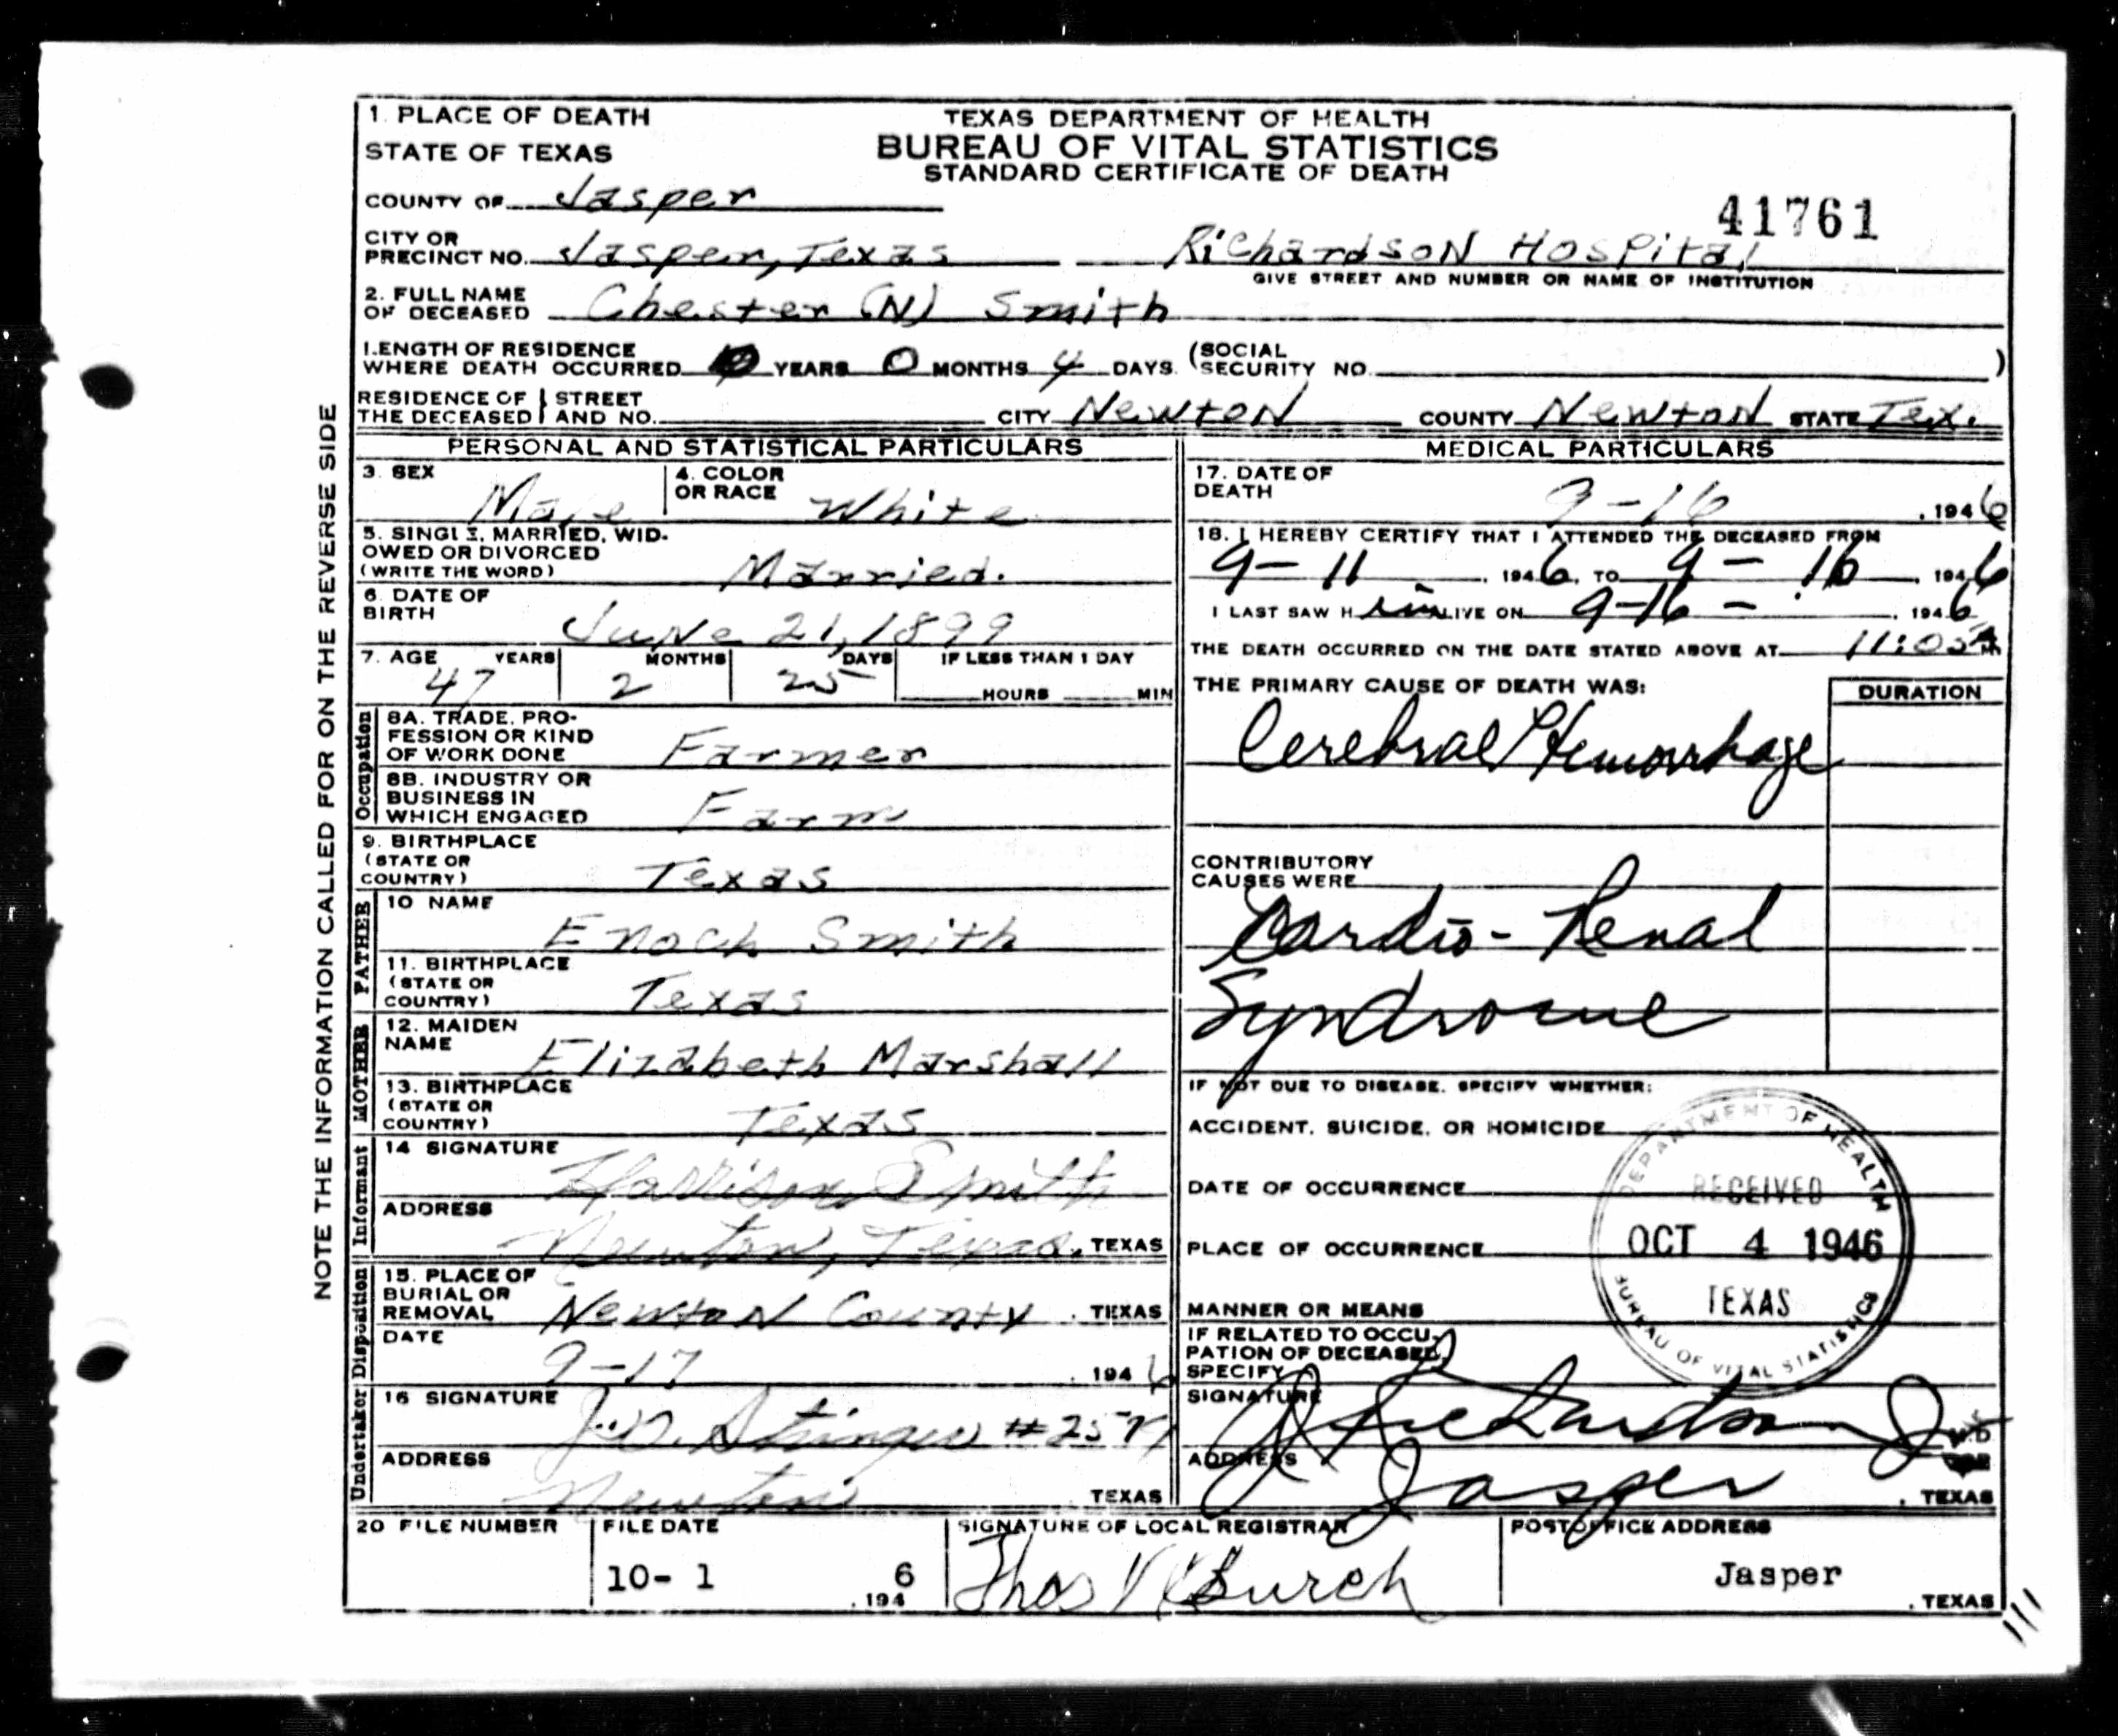 1. PLACE OF DEATH
STATE OF TEXAS
TEXAS DEPARTMENT OF HEALTH
BUREAU OF VITAL STATISTICS
STANDARD CERTIFICATE OF DEATH
COUNTY OF Jasper
41761
CITY OR PRECINCT NO. Jasper, Texas Richardson Hospital
GIVE STREET AND NUMBER OR NAME OF INSTITUTION
2. FULL NAME OF DECEASED Chester (N) Smith
LENGTH OF RESIDENCE WHERE DEATH OCCURRED YEARS 0 MONTHS 4 DAYS. (SOCIAL SECURITY NO. )
RESIDENCE OF THE DECEASED STREET AND NO. CITY Newton COUNTY Newton STATE Tex.
NOTE THE INFORMATION CALLED FOR ON THE REVERSE SIDE
PERSONAL AND STATISTICAL PARTICULARS
3. SEX Male 4. COLOR OR RACE White
5. SINGLE, MARRIED, WIDOWED OR DIVORCED (WRITE THE WORD) Married.
6. DATE OF BIRTH June 21, 1899
7. AGE YEARS MONTHS DAYS IF LESS THAN 1 DAY
47 2 25 HOURS MIN
Occupation
8A. TRADE, PROFESSION OR KIND OF WORK DONE Farmer
8B. INDUSTRY OR BUSINESS IN WHICH ENGAGED Farm
9. BIRTHPLACE (STATE OR COUNTRY) Texas
FATHER
10 NAME Enoch Smith
11. BIRTHPLACE (STATE OR COUNTRY) Texas
MOTHER
12. MAIDEN NAME Elizabeth Marshall
13. BIRTHPLACE (STATE OR COUNTRY) Texas
Informant
14 SIGNATURE Harrison Smith
ADDRESS Newton, Texas. TEXAS
Disposition
15. PLACE OF BURIAL OR REMOVAL Newton County, TEXAS
DATE 9-17 194 6
Undertaker
16 SIGNATURE J.D. Stringer
ADDRESS Newton TEXAS
MEDICAL PARTICULARS
17. DATE OF DEATH 9-16, 1946
18. I HEREBY CERTIFY THAT I ATTENDED THE DECEASED FROM
9-11, 1946, TO 9-16, 1946
I LAST SAW HIM ALIVE ON 9-16-, 1946
THE DEATH OCCURRED ON THE DATE STATED ABOVE AT 11:05 A M
THE PRIMARY CAUSE OF DEATH WAS: DURATION
Cerebral Hemorrhage
CONTRIBUTORY CAUSES WERE
Cardio-Renal
Syndrome
IF NOT DUE TO DISEASE, SPECIFY WHETHER:
ACCIDENT, SUICIDE, OR HOMICIDE
DATE OF OCCURRENCE
PLACE OF OCCURRENCE
MANNER OR MEANS
IF RELATED TO OCCUPATION OF DECEASED, SPECIFY
DEPARTMENT OF HEALTH
RECEIVED
OCT 4 1946
TEXAS
BUREAU OF VITAL STATISTICS
SIGNATURE J Richardson Jr M.D.
ADDRESS Jasper, TEXAS
20 FILE NUMBER FILE DATE SIGNATURE OF LOCAL REGISTRAR POSTOFFICE ADDRESS
10- 1 , 194 6 Thos Burch Jasper, TEXAS